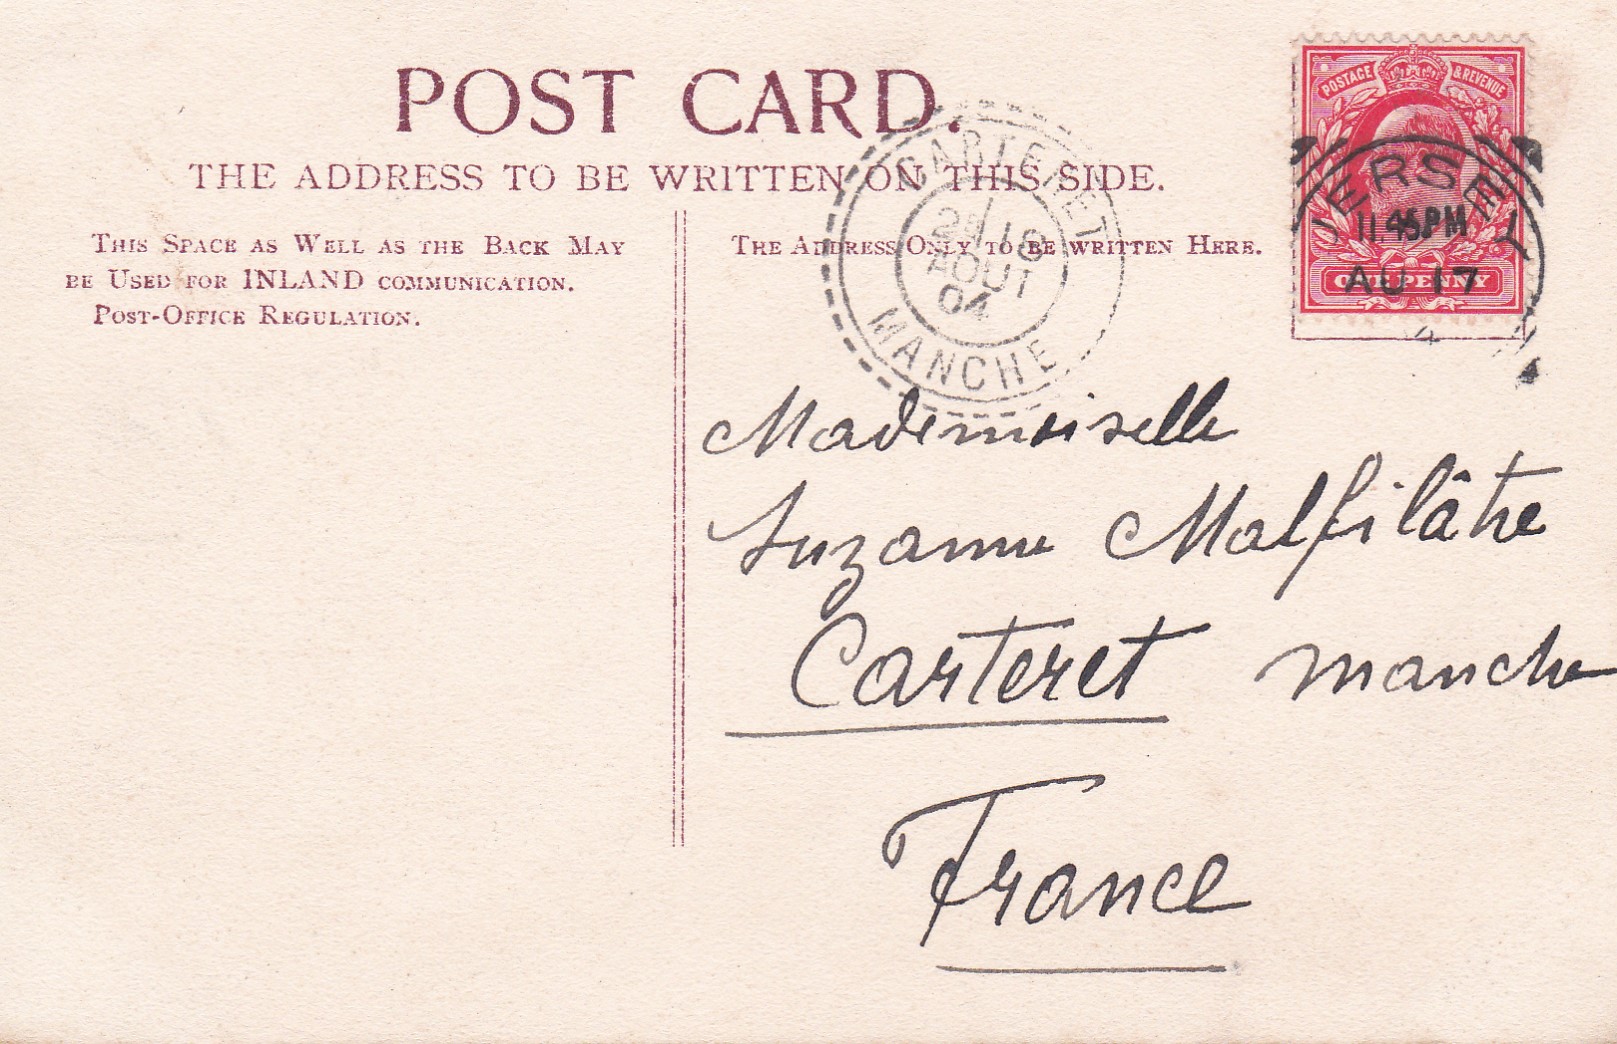 POST CARD.
THE ADDRESS TO BE WRITTEN ON THIS SIDE.
THIS SPACE AS WELL AS THE BACK MAY
BE USED FOR INLAND COMMUNICATION.
POST-OFFICE REGULATION.
THE ADDRESS ONLY TO BE WRITTEN HERE.
CARTERET
18
AOUT
04
MANCHE
POSTAGE & REVENUE
ONE PENNY
JERSEY
11 45 PM
AU 17
4
Mademoiselle
Suzanne Malfilâtre
Carteret manche
France